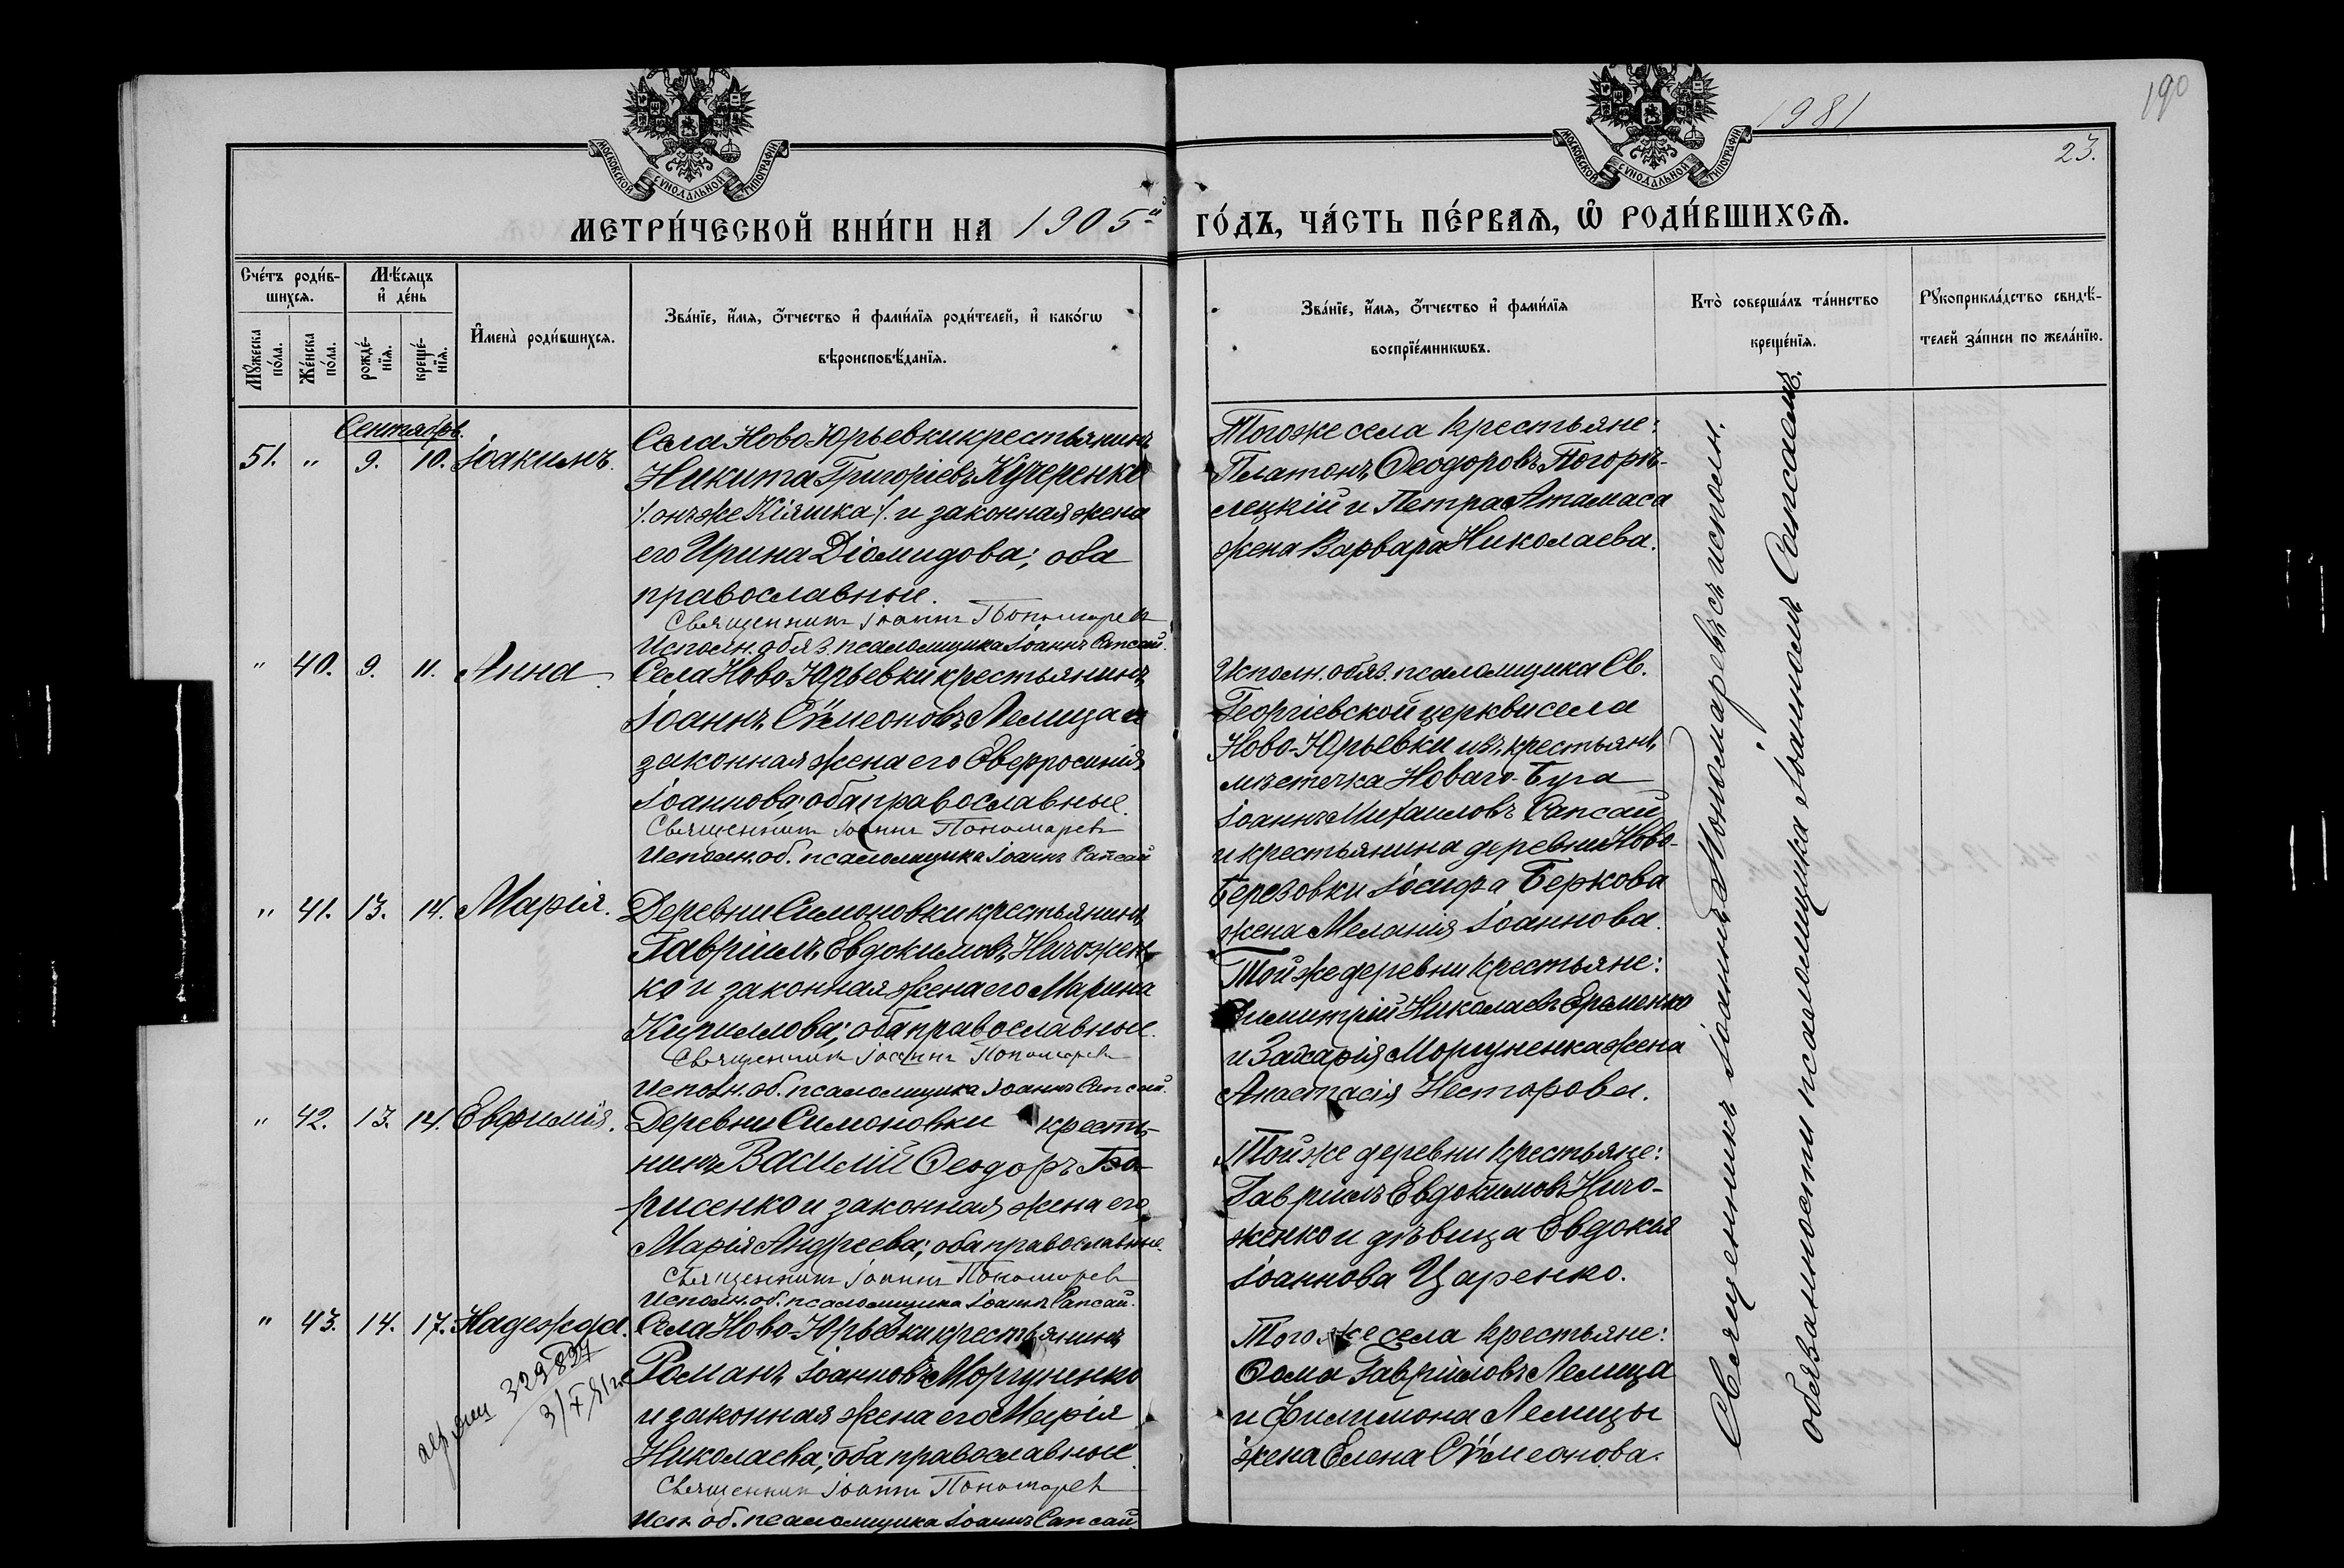 190
1981
23.
МОСКОВСКОЙ СѴНОДАЛЬНОЙ ТИПОГРАФІИ
МОСКОВСКОЙ СѴНОДАЛЬНОЙ ТИПОГРАФІИ
МЕТРИ́ЧЕСКОЙ КНИ́ГИ НА 1905й
ГО́ДЪ, ЧА́СТЬ ПЕ́РВАѦ, Ѡ҆ РОДИ́ВШИХСѦ.
Сче́тъ роди́в-
шихсѧ.
Мꙋжеска по́ла.
Же́нска по́ла.
Мѣ́сѧцъ
и҆ де́нь
рожде́-
нїѧ.
креще́-
нїѧ.
И҆мена̀ роди́вшихсѧ.
Зва́нїе, и҆́мѧ, ѻ҆́тчество и҆ фами́лїѧ роди́телей, и҆ како́гѡ
вѣроисповѣ́данїѧ.
Зва́нїе, и҆́мѧ, ѻ҆́тчество и҆ фами́лїѧ
воспрїе́мникѡвъ.
Кто̀ соверша́лъ та́инство
креще́нїѧ.
Рꙋкоприкла́дство свидѣ́-
телей за́писи по жела́нїю.
Сентябрь.
51. " 9. 10. Іоакимъ.
Села Ново Юрьевки крестьянинъ
Никита Григоріевъ Кучеренко
/. онъ же Кіяшка /. и законная жена
его Ирина Діомидова; оба
православные.
Священникъ Іоаннъ Пономаревъ
Исполн. обяз. псаломщика Іоаннъ Сапсай.
Тогоже села крестьяне:
Платонъ Ѳеодоровъ Погорѣ-
лецкій и Петра Атамаса
жена Варвара Николаева.
" 40. 9. 11. Анна.
Села Ново-Юрьевки крестьянинъ
Іоаннъ Сѵмеоновъ Лемица и
законная жена его Евфросинія
Іоаннова; оба православные.
Священникъ Іоаннъ Пономаревъ
Исполн. об. псаломщика Іоаннъ Сапсай
Исполн. обяз. псаломщика Св.
Георгіевской церкви села
Ново-Юрьевки изъ крестьянъ
мѣстечка Новаго-Буга
Іоаннъ Михаиловъ Сапсай
и крестьянина деревни Ново-
Березовки Іосифа Беркова
жена Меланія Іоаннова.
" 41. 13. 14. Марія.
Деревни Симоновки крестьянинъ
Гавріилъ Евдокимовъ Ничожен-
ко и законная жена его Марина
Кириллова; оба православные.
Священникъ Іоаннъ Пономаревъ
Исполн. об. псаломщика Іоаннъ Сапсай.
Той же деревни крестьяне:
Димитрій Николаевъ Еременко
и Захарія Моргуненка жена
Анастасія Несторова.
" 42. 13. 14. Евфимія.
Деревни Симоновки крестья-
нинъ Василій Ѳеодоръ Бо-
рисенко и законная жена его
Марія Андреева; оба православные.
Священникъ Іоаннъ Пономаревъ
Исполн. об. псаломщика Іоаннъ Сапсай.
Той же деревни крестьяне:
Гавріилъ Евдокимовъ Ничо-
женко и дѣвица Евдокія
Іоаннова Царенко.
" 43. 14. 17. Надежда.
Села Ново-Юрьевки крестьянинъ
Романъ Іоанновъ Моргуненко
и законная жена его Марія
Николаева; оба православные.
Священникъ Іоаннъ Пономаревъ
Исп. об. псаломщика Іоаннъ Сапсай.
329827
3/X 81 г.
Того же села крестьяне:
Ѳома Гавріиловъ Лемица
и Филимона Лемицы
жена Елена Сѵмеонова.
Священникъ Іоаннъ Пономаревъ съ исполн.
обязанности псаломщика Іоанномъ Сапсаемъ.